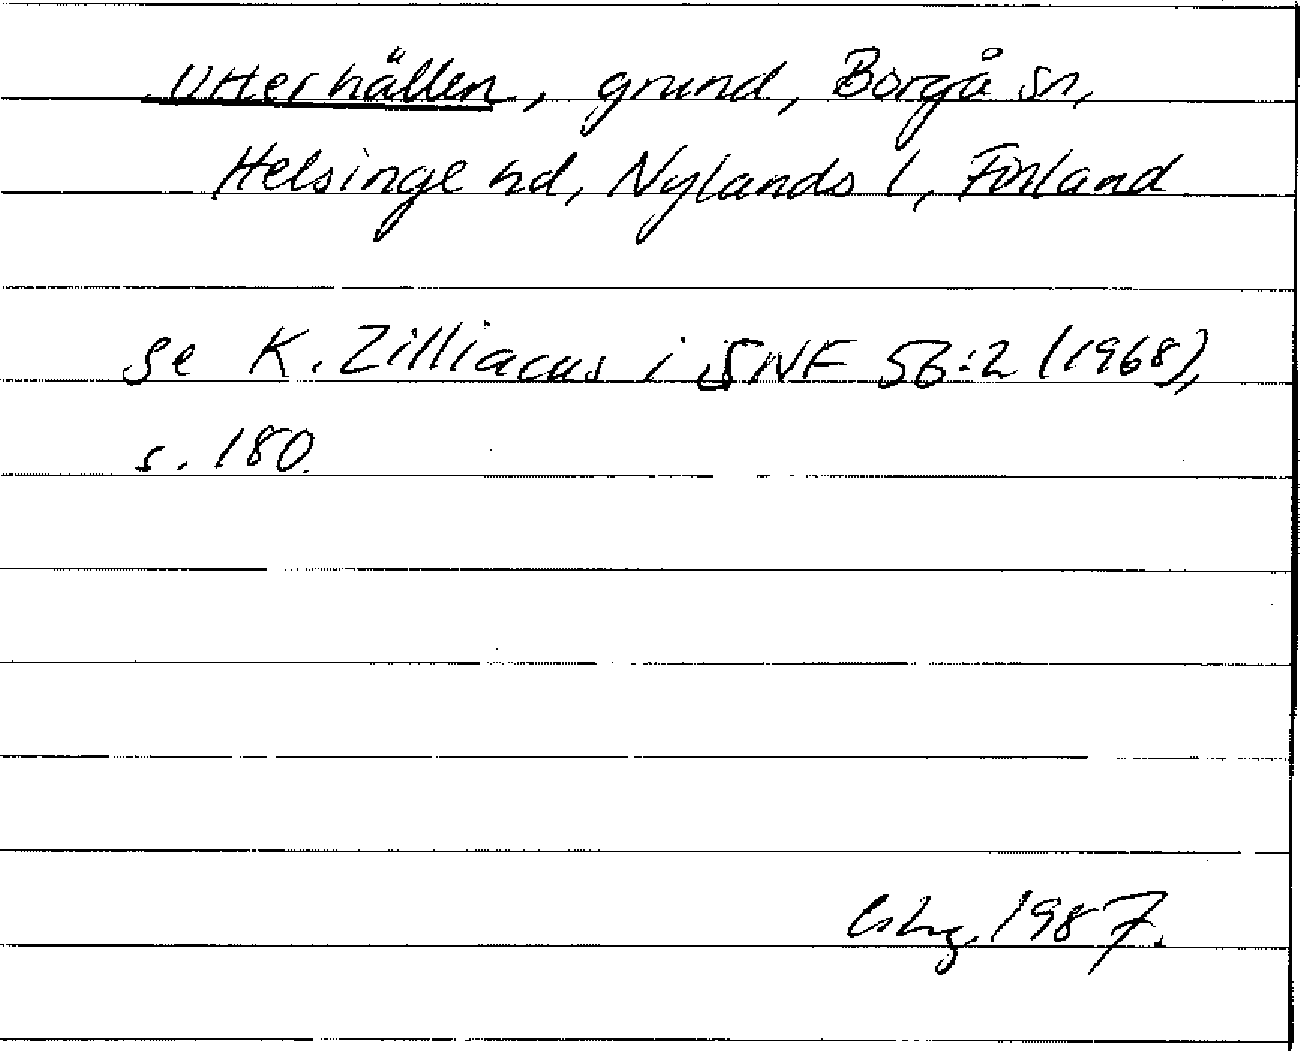 Utterhällen, grund, Borgå sn,
Helsinge hd, Nylands l, Finland
se K. Zilliacus i SNF 56:2 (1968),
s. 180.
1987.